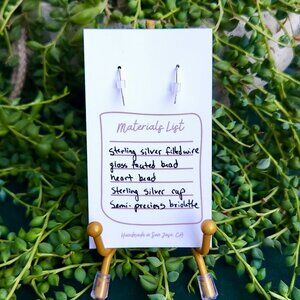 Materials List
Sterling silver filled wire
glass faceted bead
heart bead
Sterling silver cup
Semi-precious briolette
Handmade in San Jose, CA